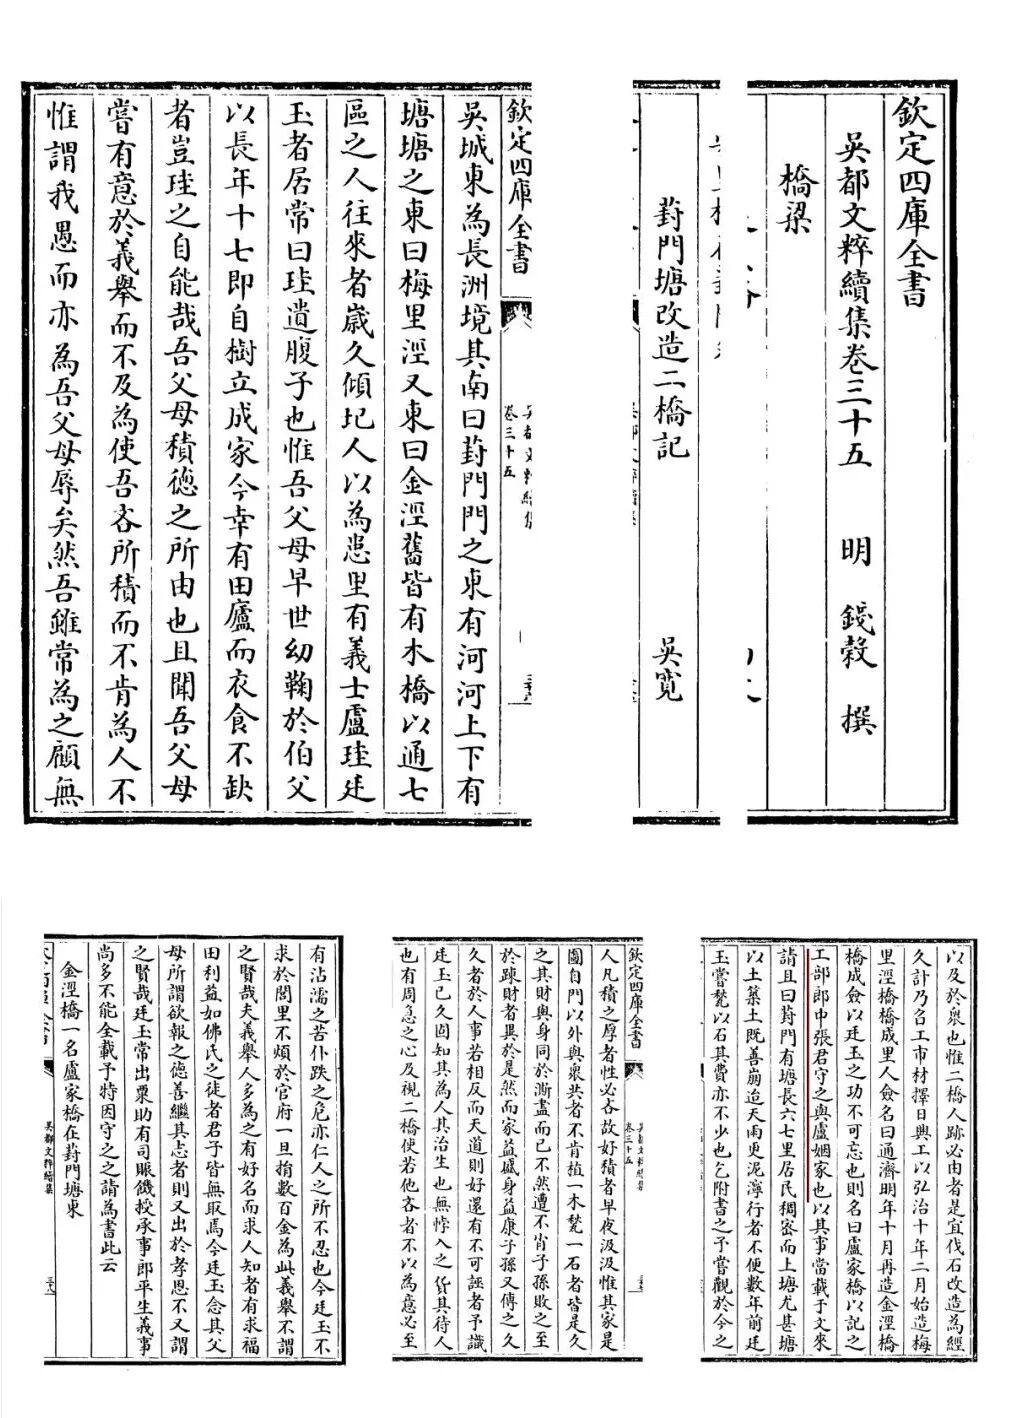 欽定四庫全書
吳都文粹續集卷三十五 明 錢穀 撰
橋梁
葑門塘改造二橋記 吳寬
欽定四庫全書
卷三十五
吳城東為長洲境其南曰葑門門之東有河河上下有
塘塘之東曰梅里涇又東曰金涇舊皆有木橋以通七
區之人往來者歲久傾圮人以為患里有義士盧珪廷
玉者居常曰珪遺腹子也惟吾父母早世幼鞠於伯父
以長年十七即自樹立成家今幸有田廬而衣食不缺
者豈珪之自能哉吾父母積德之所由也且聞吾父母
嘗有意於義舉而不及為使吾吝所積而不肯為人不
惟謂我愚而亦為吾父母辱矣然吾雖常為之顧無
以及於衆也惟二橋人跡必由者是宜伐石改造為經
久計乃召工市材擇日興工以弘治十年二月始造梅
里涇橋橋成里人僉名曰通濟明年十月再造金涇橋
橋成僉以廷玉之功不可忘也則名曰盧家橋以記之
工部郎中張君守之與盧姻家也以其事當載于文來
請且曰葑門有塘長六七里居民稠密而上塘尤甚塘
以土築土既善崩迨天雨更泥濘行者不便數年前廷
玉嘗甃以石其費亦不少也乞附書之予嘗觀於今之
欽定四庫全書
卷三十五
人凡積之厚者性必吝故好積者早夜汲汲惟其家是
圖自門以外與衆共者不肯植一木甃一石者皆是久
之其財與身同於澌盡而已不然遭不肖子孫敗之至
於踈財者異於是然而家益盛身益康子孫又傳之久
久者於人事若相反而天道則好還有不可誣者予識
廷玉已久固知其為人其治生也無悖入之貨其待人
也有周急之心及視二橋使若他吝者不以為意必至
有沾濡之苦仆跌之危亦仁人之所不忍也今廷玉不
求於閭里不煩於官府一旦捐數百金為此義舉不謂
之賢哉夫義舉人多為之有好名而求人知者有求福
田利益如佛氏之徒者君子皆無取焉今廷玉念其父
母所謂欲報之德善繼其志者則又出於孝思不又謂
之賢哉廷玉常出粟助有司賑饑授承事郎平生義事
尚多不能全載予特因守之之請為書此云
金涇橋一名盧家橋在葑門塘東
吳都文粹續集